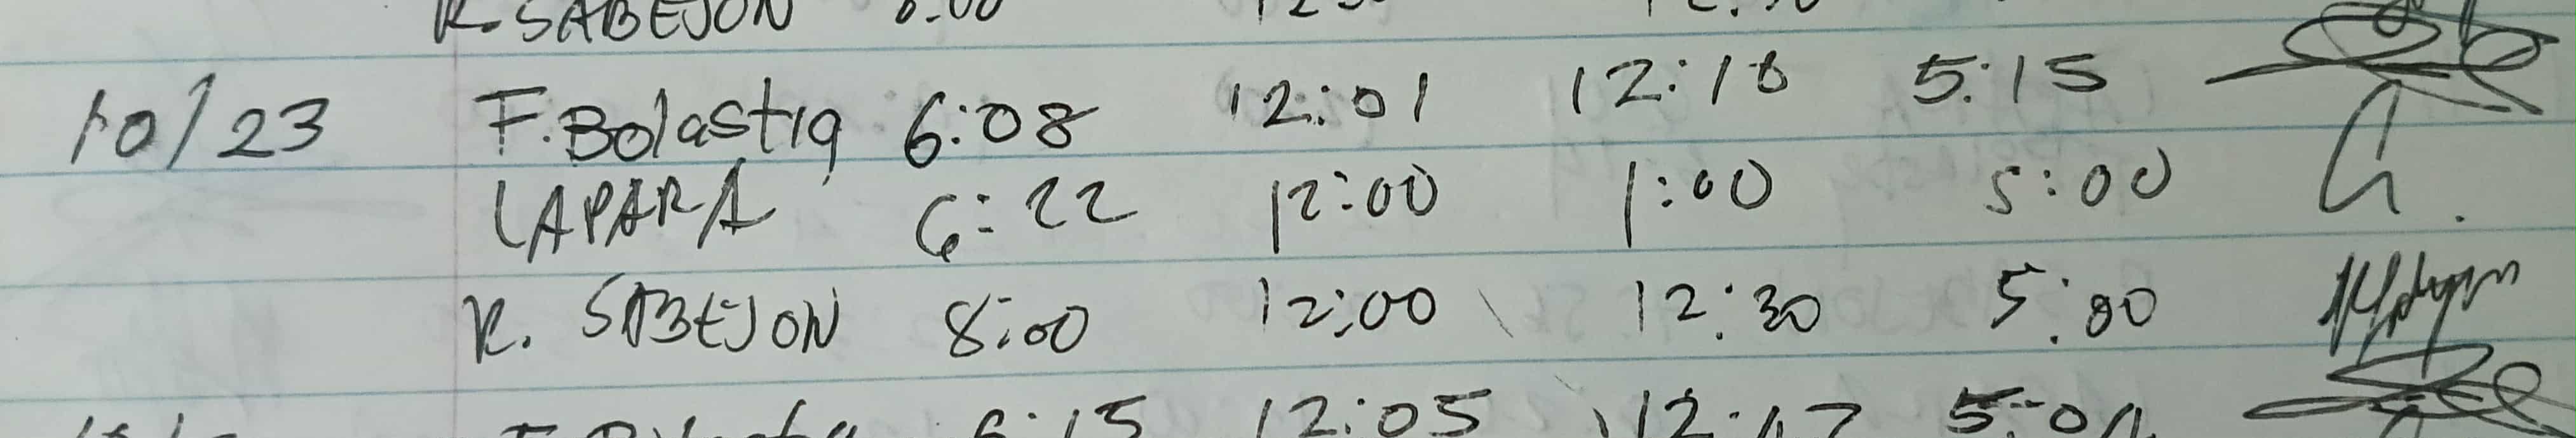 R. SABEJON 8:00 12:30
10/23 F. Bolastig 6:08 12:01 12:18 5:15
LAPARA 6:22 12:00 1:00 5:00
R. SABEJON 8:00 12:00 12:30 5:00
6:15 12:05 12:17